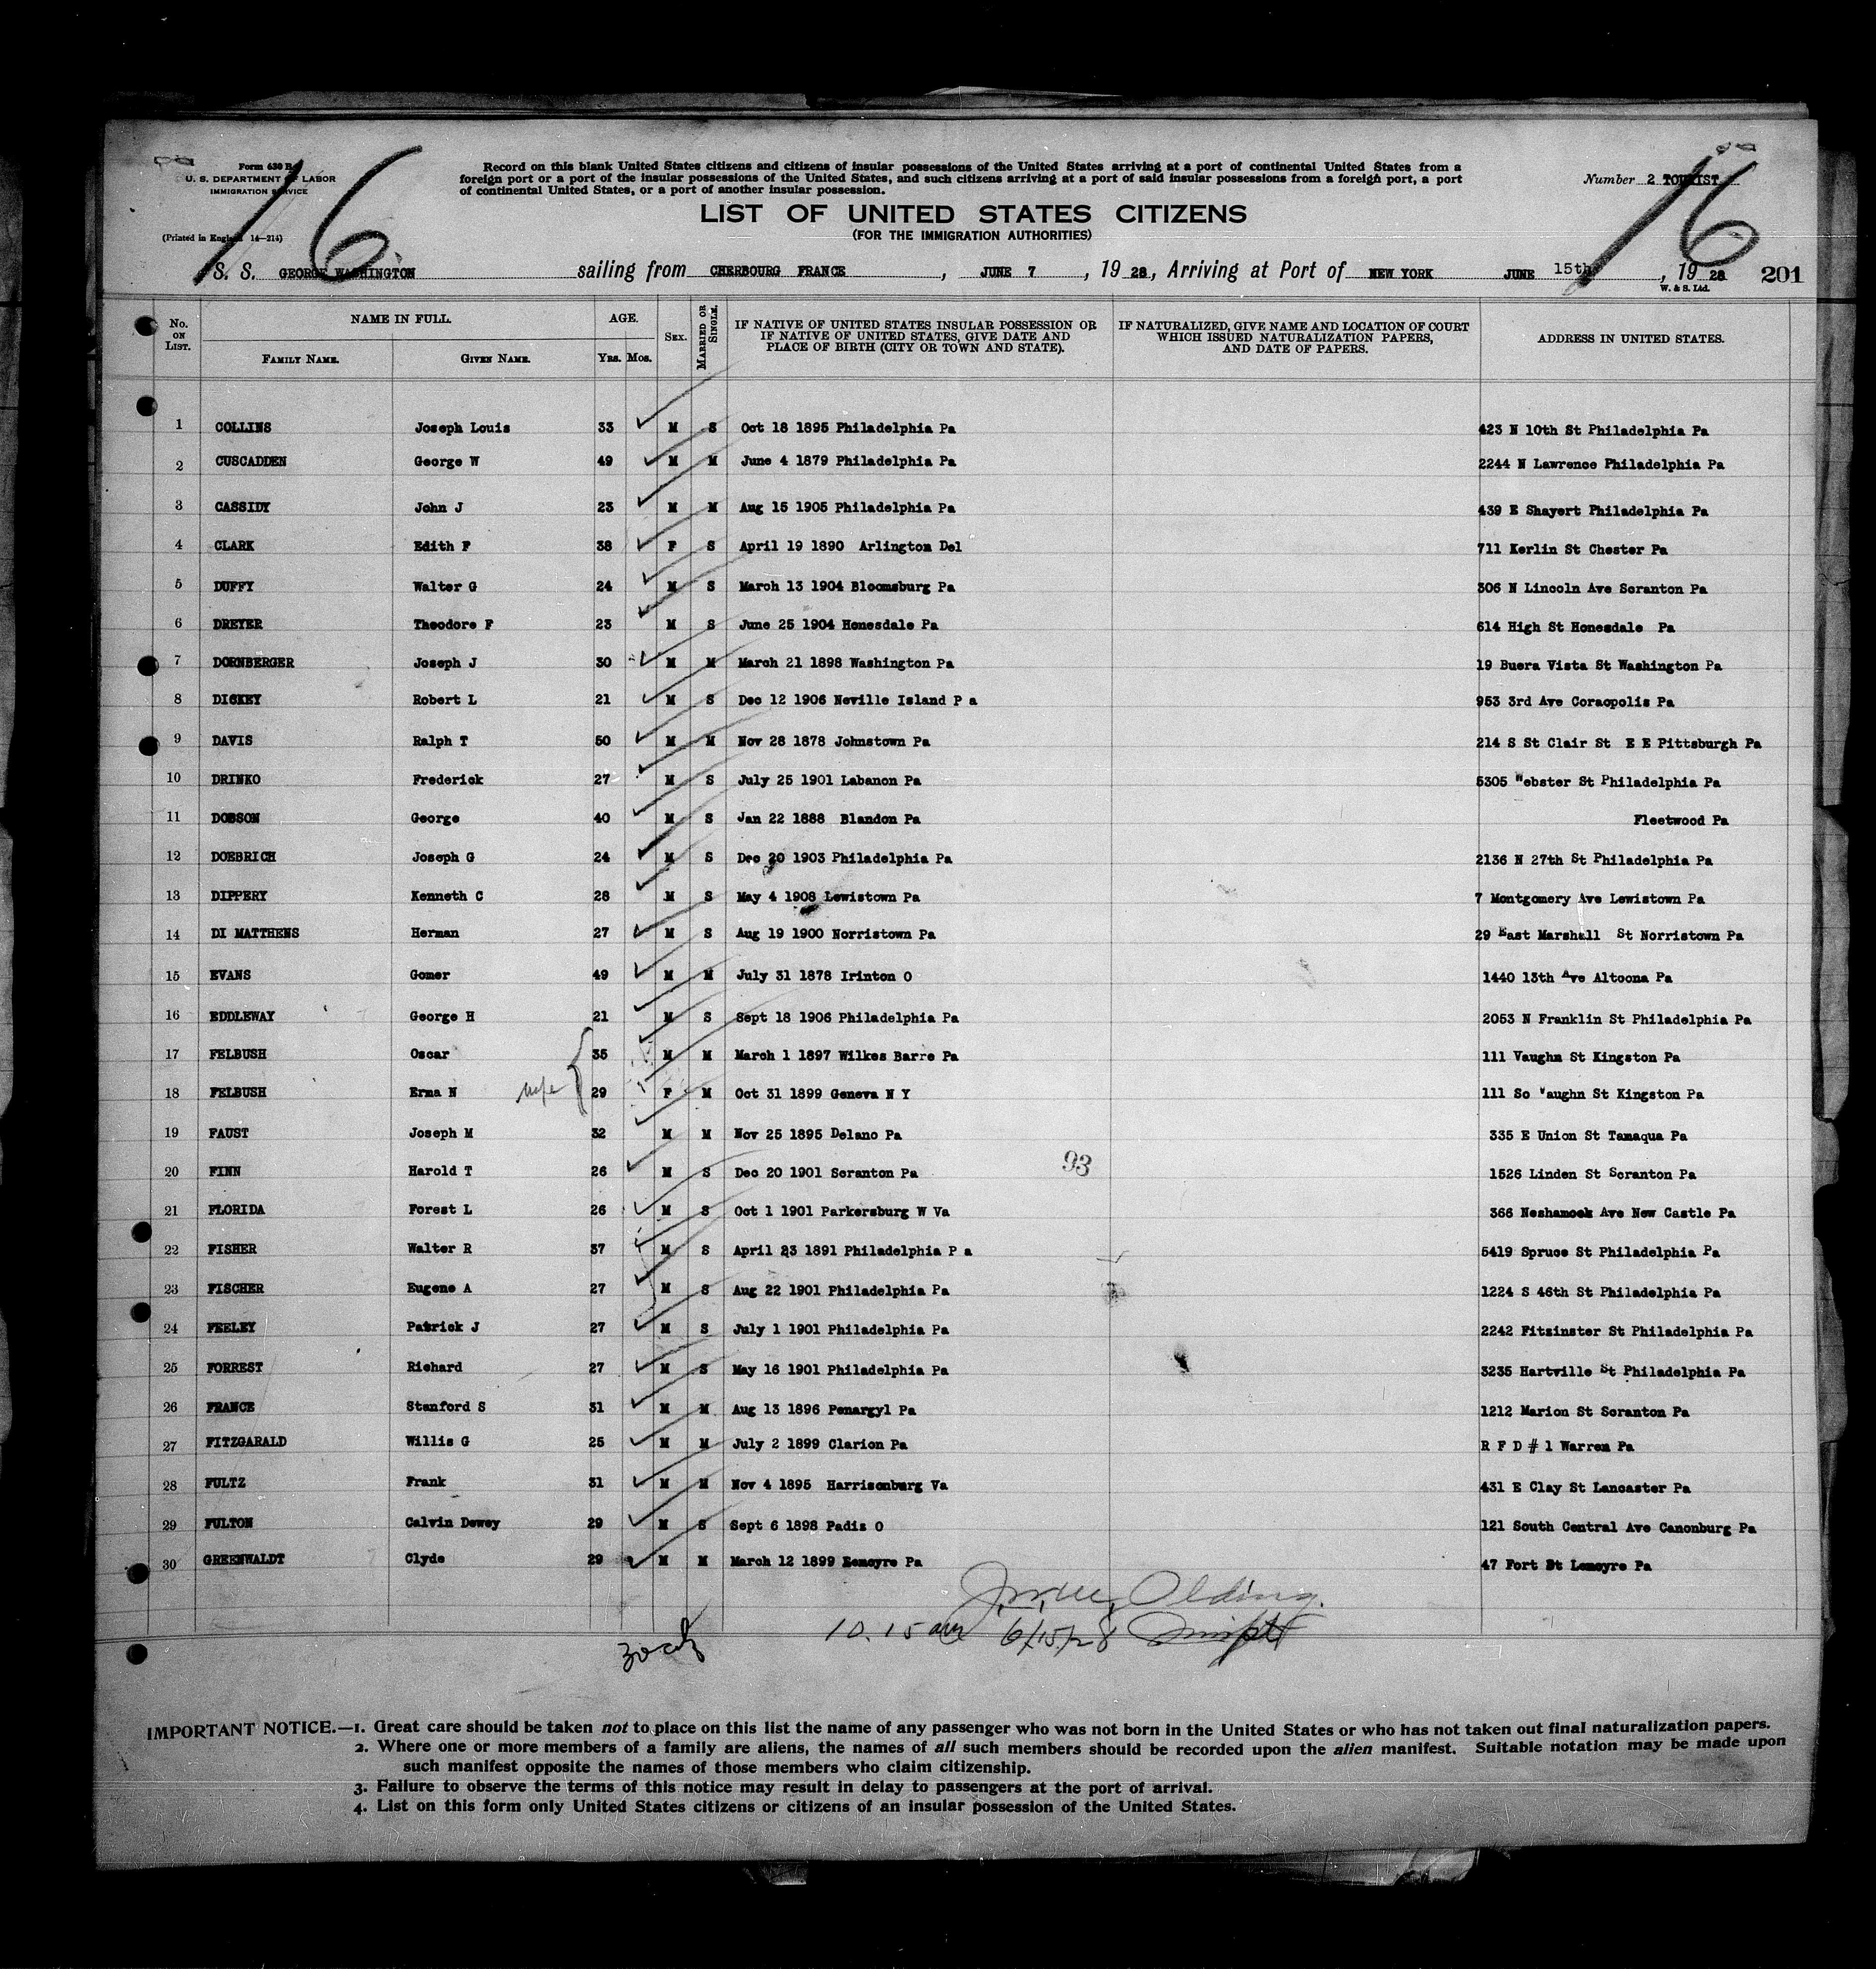 Form 630 B
U. S. DEPARTMENT OF LABOR
IMMIGRATION SERVICE
(Printed in England 14—214)
16
Record on this blank United States citizens and citizens of insular possessions of the United States arriving at a port of continental United States from a
foreign port or a port of the insular possessions of the United States, and such citizens arriving at a port of said insular possessions from a foreign port, a port
of continental United States, or a port of another insular possession.
Number 2 TOURIST
16
LIST OF UNITED STATES CITIZENS
(FOR THE IMMIGRATION AUTHORITIES)
S. S. GEORGE WASHINGTON sailing from CHERBOURG FRANCE, JUNE 7, 1928, Arriving at Port of NEW YORK JUNE 15th, 1928 201
W. & S. Ltd.
No. ON LIST. NAME IN FULL. FAMILY NAME. GIVEN NAME. AGE. YRS. MOS. SEX. MARRIED OR SINGLE. IF NATIVE OF UNITED STATES INSULAR POSSESSION OR IF NATIVE OF UNITED STATES, GIVE DATE AND PLACE OF BIRTH (CITY OR TOWN AND STATE). IF NATURALIZED, GIVE NAME AND LOCATION OF COURT WHICH ISSUED NATURALIZATION PAPERS, AND DATE OF PAPERS. ADDRESS IN UNITED STATES.
1 COLLINS Joseph Louis 33 M S Oct 18 1895 Philadelphia Pa 423 N 10th St Philadelphia Pa
2 CUSCADDEN George W 49 M M June 4 1879 Philadelphia Pa 2244 N Lawrence Philadelphia Pa
3 CASSIDY John J 23 M M Aug 15 1905 Philadelphia Pa 439 E Shayert Philadelphia Pa
4 CLARK Edith F 38 F S April 19 1890 Arlington Del 711 Kerlin St Chester Pa
5 DUFFY Walter G 24 M S March 13 1904 Bloomsburg Pa 306 N Lincoln Ave Scranton Pa
6 DREYER Theodore F 23 M S June 25 1904 Honesdale Pa 614 High St Honesdale Pa
7 DORNBERGER Joseph J 30 M M March 21 1898 Washington Pa 19 Buera Vista St Washington Pa
8 DICKEY Robert L 21 M S Dec 12 1906 Neville Island P a 953 3rd Ave Coraopolis Pa
9 DAVIS Ralph T 50 M M Nov 28 1878 Johnstown Pa 214 S St Clair St E E Pittsburgh Pa
10 DRINKO Frederick 27 M S July 25 1901 Labanon Pa 5305 Webster St Philadelphia Pa
11 DOBSON George 40 M S Jan 22 1888 Blandon Pa Fleetwood Pa
12 DOEBRICH Joseph G 24 M S Dec 20 1903 Philadelphia Pa 2136 N 27th St Philadelphia Pa
13 DIPPERY Kenneth C 28 M S May 4 1908 Lewistown Pa 7 Montgomery Ave Lewistown Pa
14 DI MATTHENS Herman 27 M S Aug 19 1900 Norristown Pa 29 East Marshall St Norristown Pa
15 EVANS Gomer 49 M M July 31 1878 Irinton O 1440 13th Ave Altoona Pa
16 EDDLEWAY George H 21 M S Sept 18 1906 Philadelphia Pa 2053 N Franklin St Philadelphia Pa
17 FELBUSH Oscar 35 M M March 1 1897 Wilkes Barre Pa 111 Vaughn St Kingston Pa
18 FELBUSH Erma N wife 29 F M Oct 31 1899 Geneva N Y 111 So Vaughn St Kingston Pa
19 FAUST Joseph M 32 M M Nov 25 1895 Delano Pa 335 E Union St Tamaqua Pa
20 FINN Harold T 26 M S Dec 20 1901 Scranton Pa 93 1526 Linden St Scranton Pa
21 FLORIDA Forest L 26 M S Oct 1 1901 Parkersburg W Va 366 Neshamock Ave New Castle Pa
22 FISHER Walter R 37 M S April 23 1891 Philadelphia P a 5419 Spruce St Philadelphia Pa
23 FISCHER Eugene A 27 M S Aug 22 1901 Philadelphia Pa 1224 S 46th St Philadelphia Pa
24 FEELEY Patrick J 27 M S July 1 1901 Philadelphia Pa 2242 Fitzinster St Philadelphia Pa
25 FORREST Richard 27 M S May 16 1901 Philadelphia Pa 3235 Hartville St Philadelphia Pa
26 FRANCE Stanford S 31 M M Aug 13 1896 Penargyl Pa 1212 Marion St Scranton Pa
27 FITZGARALD Willis G 25 M M July 2 1899 Clarion Pa R F D # 1 Warren Pa
28 FULTZ Frank 31 M M Nov 4 1895 Harrisonburg Va 431 E Clay St Lancaster Pa
29 FULTON Calvin Dewey 29 M S Sept 6 1898 Padis O 121 South Central Ave Canonburg Pa
30 GREENWALDT Clyde 29 M M March 12 1899 Lemoyre Pa 47 Fort St Lemoyre Pa
Olding.
10.15 am 6/15/28
IMPORTANT NOTICE.—1. Great care should be taken not to place on this list the name of any passenger who was not born in the United States or who has not taken out final naturalization papers.
2. Where one or more members of a family are aliens, the names of all such members should be recorded upon the alien manifest. Suitable notation may be made upon
such manifest opposite the names of those members who claim citizenship.
3. Failure to observe the terms of this notice may result in delay to passengers at the port of arrival.
4. List on this form only United States citizens or citizens of an insular possession of the United States.